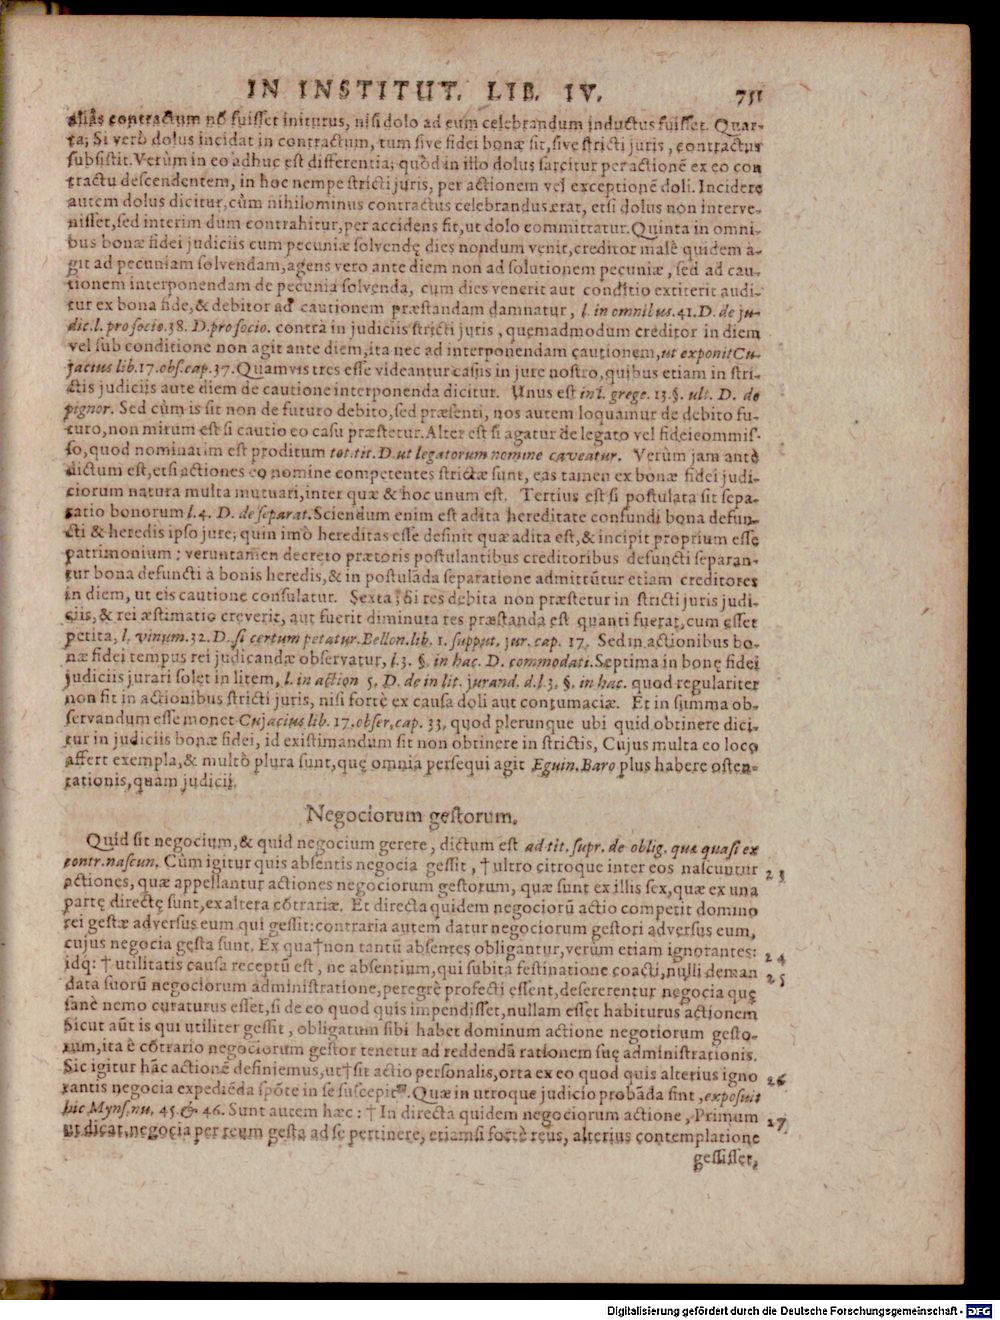 IN INSTITUT. LIB. IV. 751
aliâs contractum nō fuisset initurus, nisi dolo ad eum celebrandum inductus fuisset. Quar-
ta; Si verò dolus incidat in contractum, tum sive fidei bonæ sit, sive stricti juris, contractus
subsistit. Verùm in eo adhuc est differentia; quòd in illo dolus sarcitur per actionē ex eo con
tractu descendentem, in hoc nempe stricti juris, per actionem vel exceptionē doli. Incidere
autem dolus dicitur, cùm nihilominus contractus celebrandus erat, etsi dolus non interve-
nisset, sed interim dum contrahitur, per accidens fit, ut dolo committatur. Quinta in omni-
bus bonæ fidei judiciis cum pecuniæ solvendę dies nondum venit, creditor malè quidem a-
git ad pecuniam solvendam, agens vero ante diem non ad solutionem pecuniæ, sed ad cau-
tionem interponendam de pecunia solvenda, cum dies venerit aut conditio extiterit audi-
tur ex bona fide, & debitor ad cautionem præstandam damnatur, l. in omnibus. 41. D. de ju-
dic. l. pro socio. 38. D. pro socio. contrà in judiciis stricti juris, quemadmodum creditor in diem
vel sub conditione non agit ante diem, ita nec ad interponendam cautionem, ut exponit Cu-
jacius lib. 17. obs. cap. 37. Quamvis tres esse videantur casus in jure nostro, quibus etiam in stri-
ctis judiciis ante diem de cautione interponenda dicitur. Unus est in l. grege. 13. §. ult. D. de
pignor. Sed cùm is sit non de futuro debito, sed præsenti, nos autem loquamur de debito fu-
turo, non mirum est si cautio eo casu præstetur. Alter est si agatur de legato vel fideicommis-
so, quod nominatim est proditum tot. tit. D. ut legatorum nomine caveatur. Verùm jam antè
dictum est, etsi actiones eo nomine competentes strictæ sunt, eas tamen ex bonæ fidei judi-
ciorum natura multa mutuari, inter quæ & hoc unum est. Tertius est si postulata sit sepa-
ratio bonorum l. 4. D. de separat. Sciendum enim est adita hereditate confundi bona defun-
cti & heredis ipso jure; quin imò hereditas esse definit quæ adita est, & incipit proprium esse
patrimonium; veruntamen decreto prætoris postulantibus creditoribus defuncti separan-
tur bona defuncti à bonis heredis, & in postulāda separatione admittūtur etiam creditores
in diem, ut eis cautione consulatur. Sexta; Si res debita non præstetur in stricti juris judi-
ciis, & rei æstimatio creverit, aut fuerit diminuta res præstanda est quanti fuerat, cum esset
petita, l. vinum. 32. D. si certum petatur. Bellon. lib. 1. supput. jur. cap. 17. Sed in actionibus bo-
næ fidei tempus rei judicandæ observatur, l. 3. §. in hac. D. commodati. Septima in bonę fidei
judiciis jurari solet in litem, l. in action 5. D. de in lit. jurand. d. l. 3. §. in hac. quod regulariter
non fit in actionibus stricti juris, nisi fortè ex causa doli aut contumaciæ. Et in summa ob-
servandum esse monet Cujacius lib. 17. obser. cap. 33, quod plerunque ubi quid obtinere dici-
tur in judiciis bonæ fidei, id existimandum sit non obtinere in strictis, Cujus multa eo loco
affert exempla, & multò plura sunt, quę omnia persequi agit Eguin. Baro plus habere osten-
tationis, quam judicii.
Negociorum gestorum.
Quid sit negocium, & quid negocium gerere, dictum est ad tit. supr. de oblig. quæ quasi ex
contr. nascun. Cùm igitur quis absentis negocia gessit, † ultro citroque inter eos nascuntur 23
actiones, quæ appellantur actiones negociorum gestorum, quæ sunt ex illis sex, quæ ex una
partę directę sunt, ex altera cōtrariæ. Et directa quidem negociorū actio competit domino
rei gestæ adversus eum qui gessit: contraria autem datur negociorum gestori adversus eum,
cujus negocia gesta sunt. Ex qua † non tantū absentes obligantur, verum etiam ignorantes: 24
idq: † utilitatis causa receptū est, ne absentium, qui subita festinatione coacti, nulli deman 25
data suorū negociorum administratione, peregrè profecti essent, desererentur negocia quę
sanè nemo curaturus esset, si de eo quod quis impendisset, nullam esset habiturus actionem
Sicut aūt is qui utiliter gessit, obligatum sibi habet dominum actione negotiorum gesto-
rum, ita è cōtrario negociorum gestor tenetur ad reddendā rationem suę administrationis.
Sic igitur hāc actionē definiemus, ut † sit actio personalis, orta ex eo quod quis alterius igno 26
rantis negocia expediēda spōte in se suscepit. Quæ in utroque judicio probāda sint, exposuit
hic Myns. nu. 45. & 46. Sunt autem hæc: † In directa quidem negociorum actione, Primum 27
ut dicat, negocia per reum gesta ad se pertinere, etiamsi fortè reus, alterius contemplatione
gessisset,
Digitalisierung gefördert durch die Deutsche Forschungsgemeinschaft - DFG